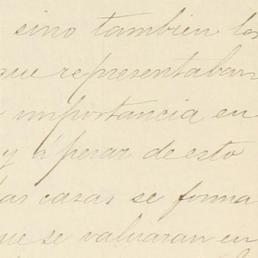 sino tambien los
que representaban
importancia en
y á pesar de esto
las casas se forma
que se valuaran en